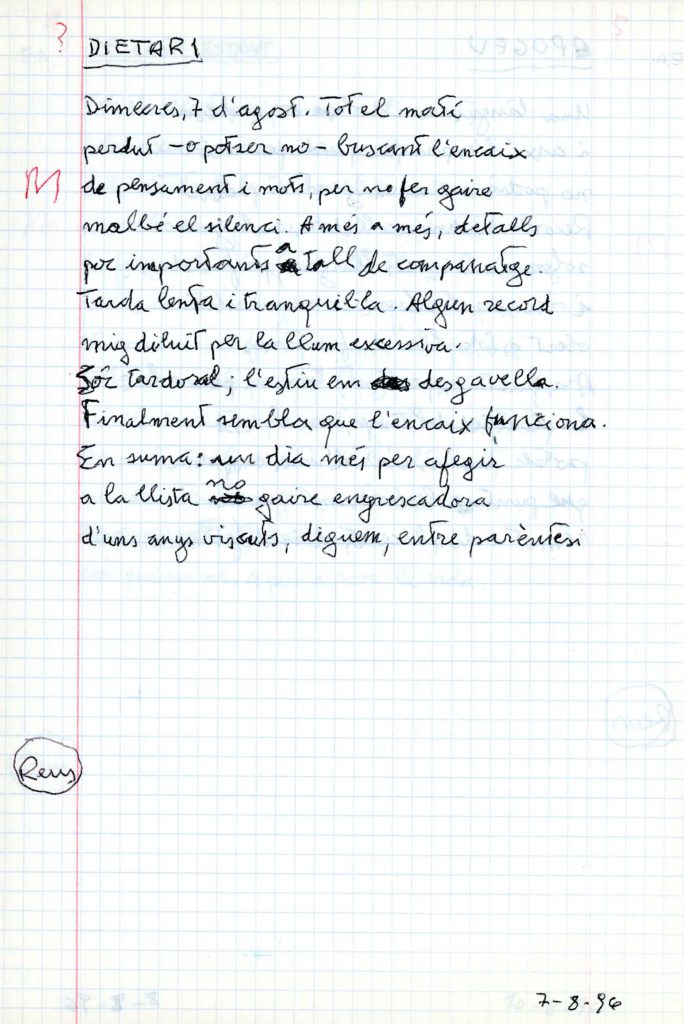 ?
DIETARI
Dimecres, 7 d'agost. Tot el matí
perdut – o potser no – buscant l'encaix
M
de pensament i mots, per no fer gaire
malbé el silenci. A més a més, detalls
poc importants a tall de companatge.
Tarda lenta i tranquil·la. Algun record
mig diluït per la llum excessiva.
Sóc tardoral; l'estiu em desgavella.
Finalment sembla que l'encaix funciona.
En suma: un dia més per afegir
a la llista no gaire engrescadora
d'uns anys viscuts, diguem, entre parèntesi
Reus
7-8-96